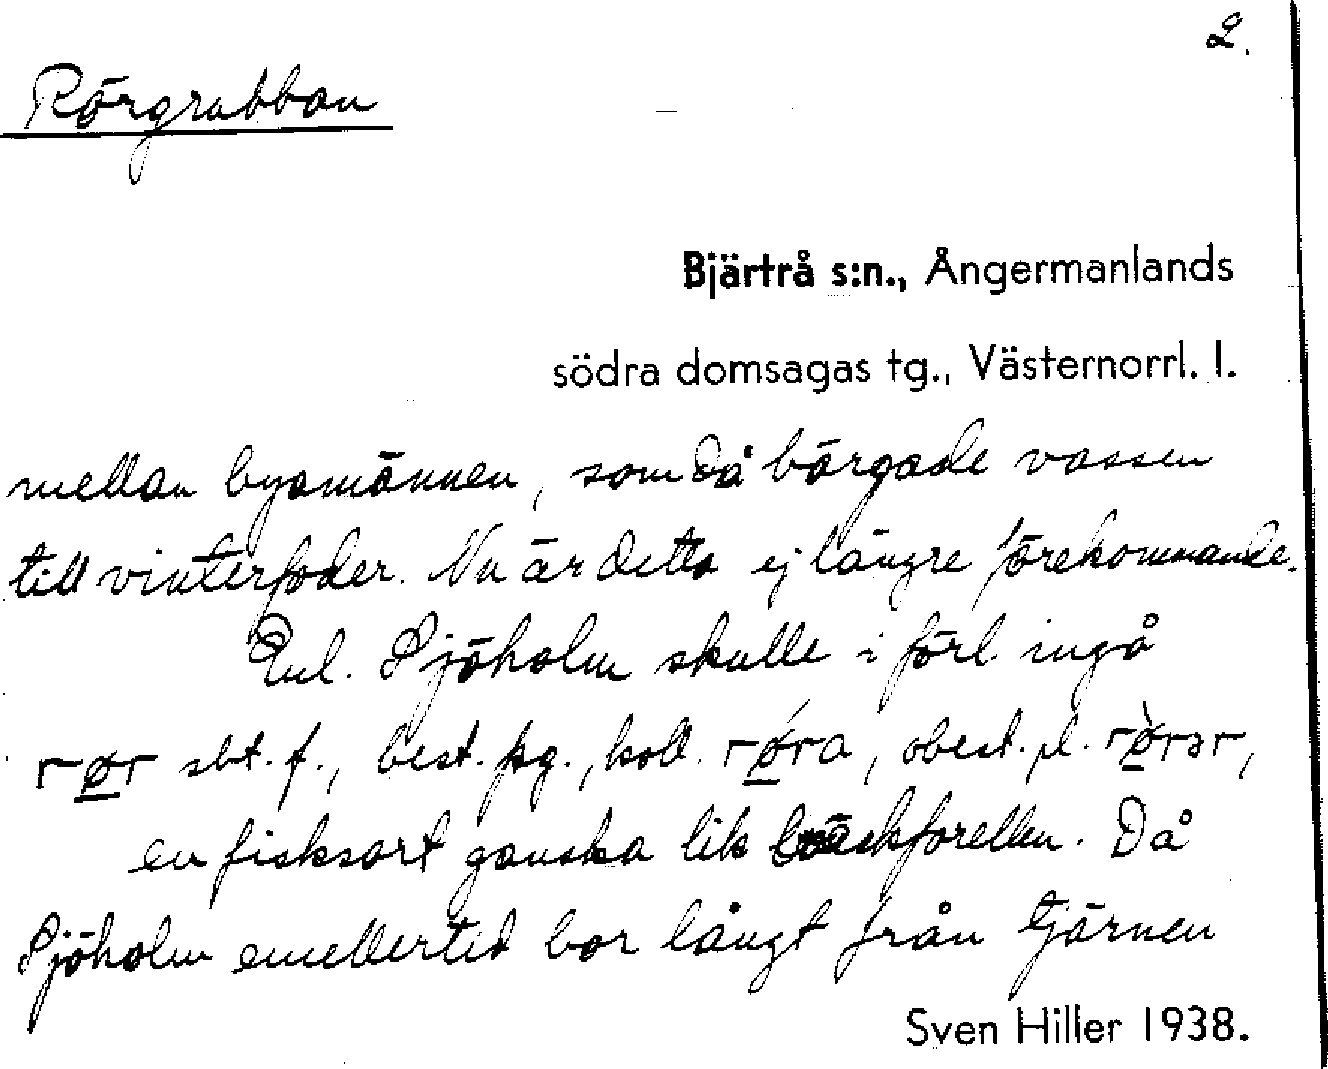 2.
Rörgrubban
Bjärtrå s:n., Ångermanlands
södra domsagas tg., Västernorrl. l.
mellan byamännen, som då bärgade vassen
till vinterfoder. Nu är detta ej längre förekommande.
Enl. Sjöholm skulle i förl. ingå
rør sbt. f., best. sg., koll. røra, obest. pl. rørər,
en fisksort ganska lik bäckforellen. Då
Sjöholm emellertid bor långt från tjärnen
Sven Hiller 1938.